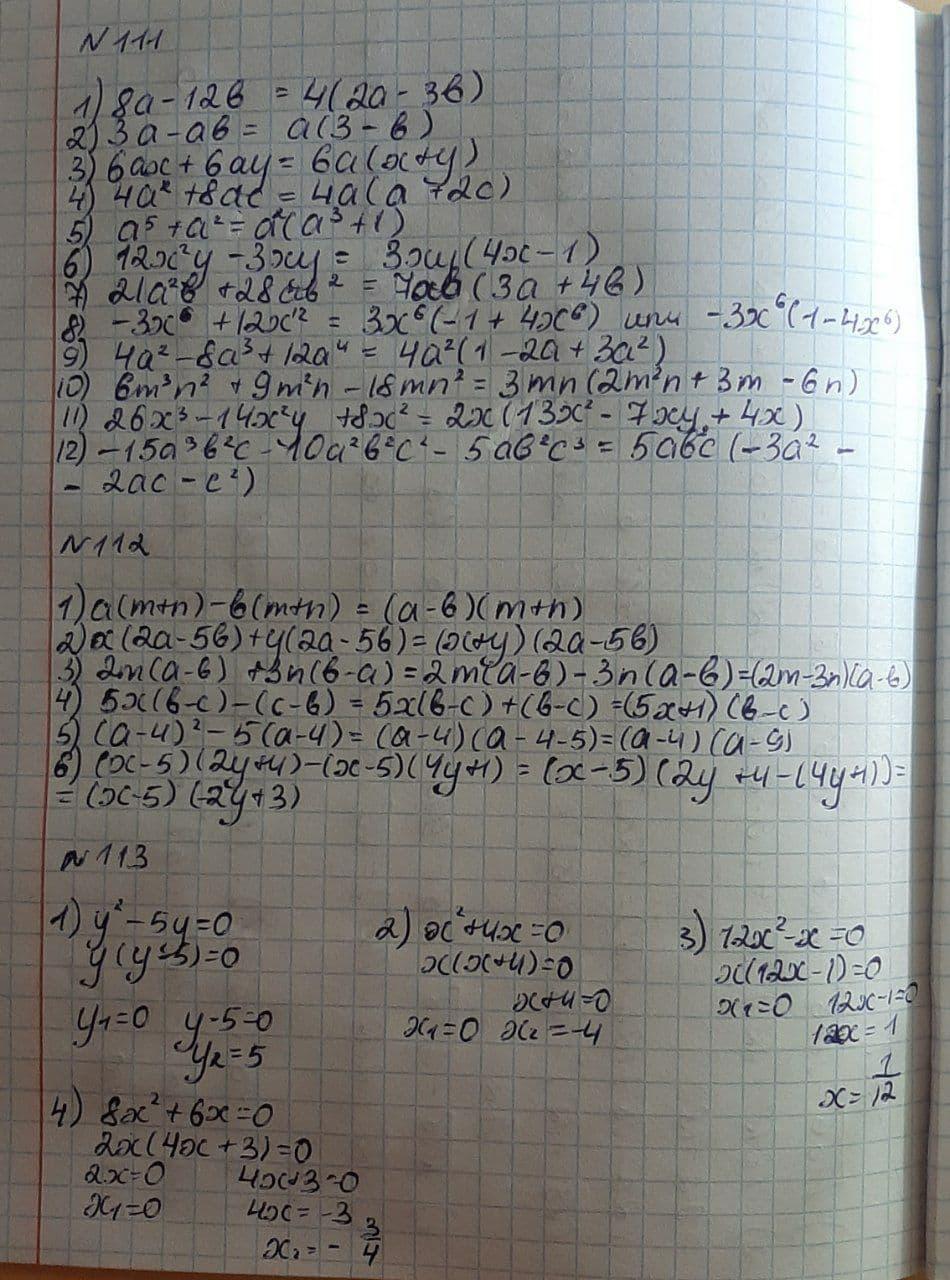 N 111
1) 8a - 12b = 4(2a - 3b)
2) 3a - ab = a(3 - b)
3) 6ax + 6ay = 6a(x+y)
4) 4a² + 8ac = 4a(a + 2c)
5) a⁵ + a² = a²(a³ + 1)
6) 12x²y - 3xy = 3xy(4x - 1)
7) 21a²b + 28ab² = 7ab(3a + 4b)
8) -3x⁶ + 12x¹² = 3x⁶(-1 + 4x⁶) или -3x⁶(1 - 4x⁶)
9) 4a² - 8a³ + 12a⁴ = 4a²(1 - 2a + 3a²)
10) 6m³n² + 9m²n - 18mn² = 3mn(2m²n + 3m - 6n)
11) 26x³ - 14x²y + 8x² = 2x(13x² - 7xy + 4x)
12) -15a³b²c - 10a²b²c² - 5ab²c³ = 5ab²c(-3a² -
- 2ac - c²)
N 112
1) a(m+n) - b(m+n) = (a-b)(m+n)
2) x(2a-5b) + y(2a-5b) = (x+y)(2a-5b)
3) 2m(a-b) + 3n(b-a) = 2m(a-b) - 3n(a-b) = (2m-3n)(a-b)
4) 5x(b-c) - (c-b) = 5x(b-c) + (b-c) = (5x+1)(b-c)
5) (a-4)² - 5(a-4) = (a-4)(a-4-5) = (a-4)(a-9)
6) (x-5)(2y+4) - (x-5)(4y+1) = (x-5)(2y+4-(4y+1)) =
= (x-5)(-2y+3)
N 113
1) y² - 5y = 0
y(y-5) = 0
y₁=0 y-5=0
y₂=5
2) x² + 4x = 0
x(x+4) = 0
x+4=0
x₁=0 x₂=-4
3) 12x² - x = 0
x(12x-1) = 0
x₁=0 12x-1=0
12x=1
x = 1/12
4) 8x² + 6x = 0
2x(4x+3) = 0
2x=0 4x+3=0
x₁=0 4x=-3
x₂ = - 3/4